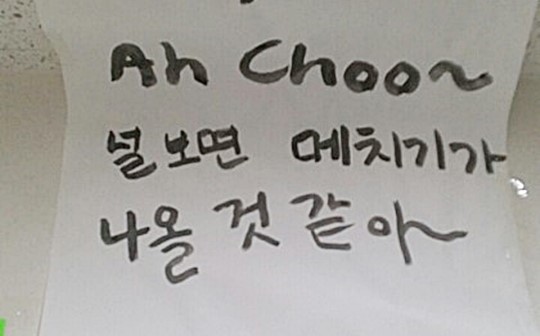 Ah Choo~
널 보면 메치기가
나올 것 같아~